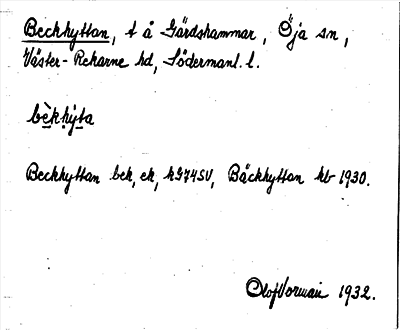 Beckhyttan, t å Gärdshammar, Öja sn,
Väster-Rekarne hd, Södermanl. l.
bèkhy̆ta
Beckhyttan bek, ek, kG74SV, Bäckhyttan kb 1930.
Olof 1932.